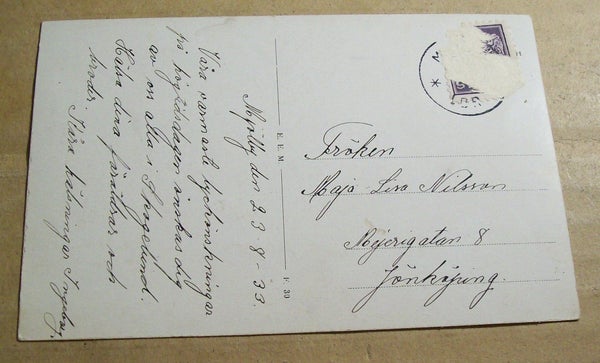 Mjölby den 23 8 - 33.
Våra varmaste lyckönskningar
på högtidsdagen önskas dig
av oss alla i Skogslund.
Hälsa dina föräldrar och
broder. Kära hälsningar Ingeborg.
E. E. M.
F. 30
Fröken
Maja-Lisa Nilsson
Mejerigatan 8
Jönköping.